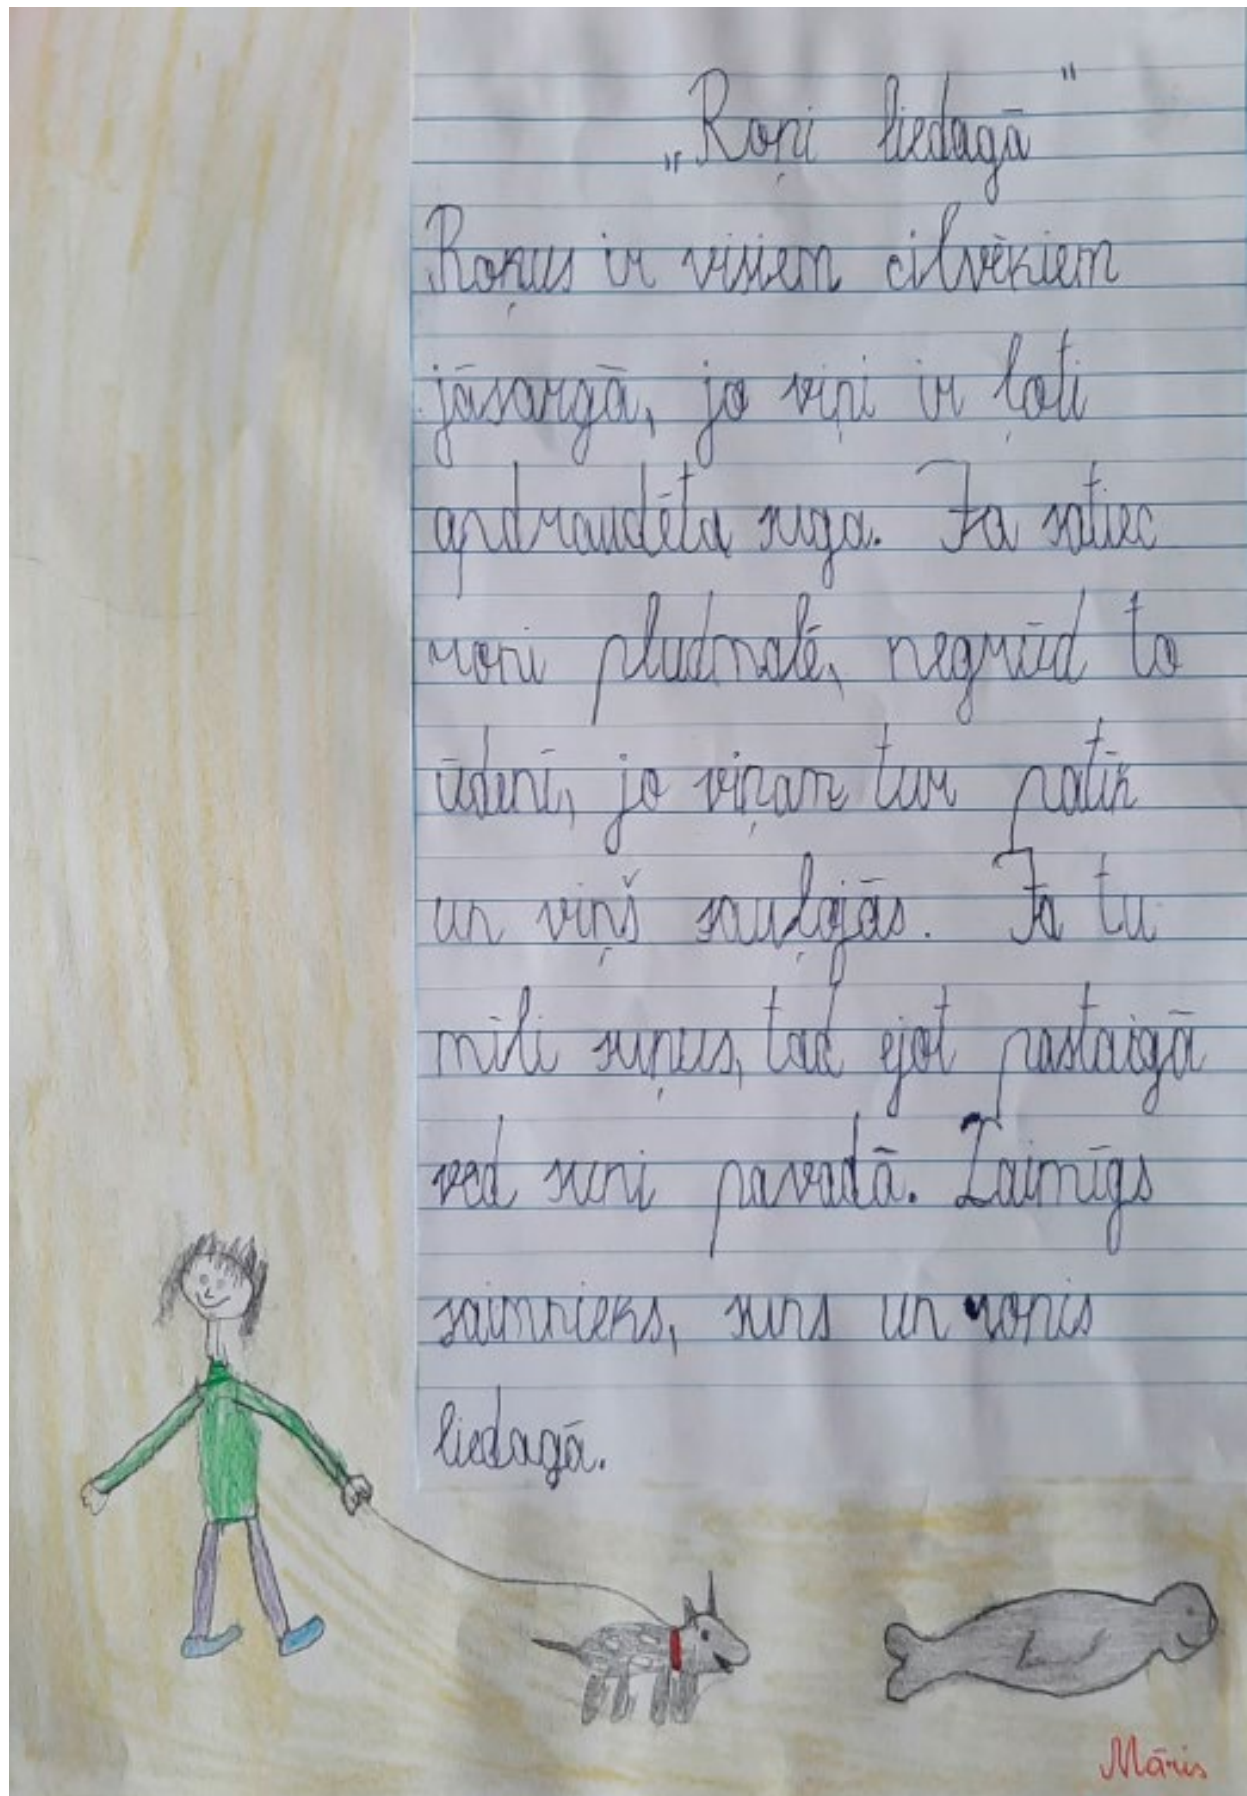 „Roņi liedagā"
Roņus ir visiem cilvēkiem
jāsargā, jo viņi ir ļoti
apdraudēta suga. Ja satiec
roni pludmalē, negrūd to
ūdenī, jo viņam tur patīk
un viņš sauļojās. Ja tu
mīli suņus, tad ejot pastaigā
ved suni pavadā. Laimīgs
saimnieks, suns un ronis
liedagā.
Māris